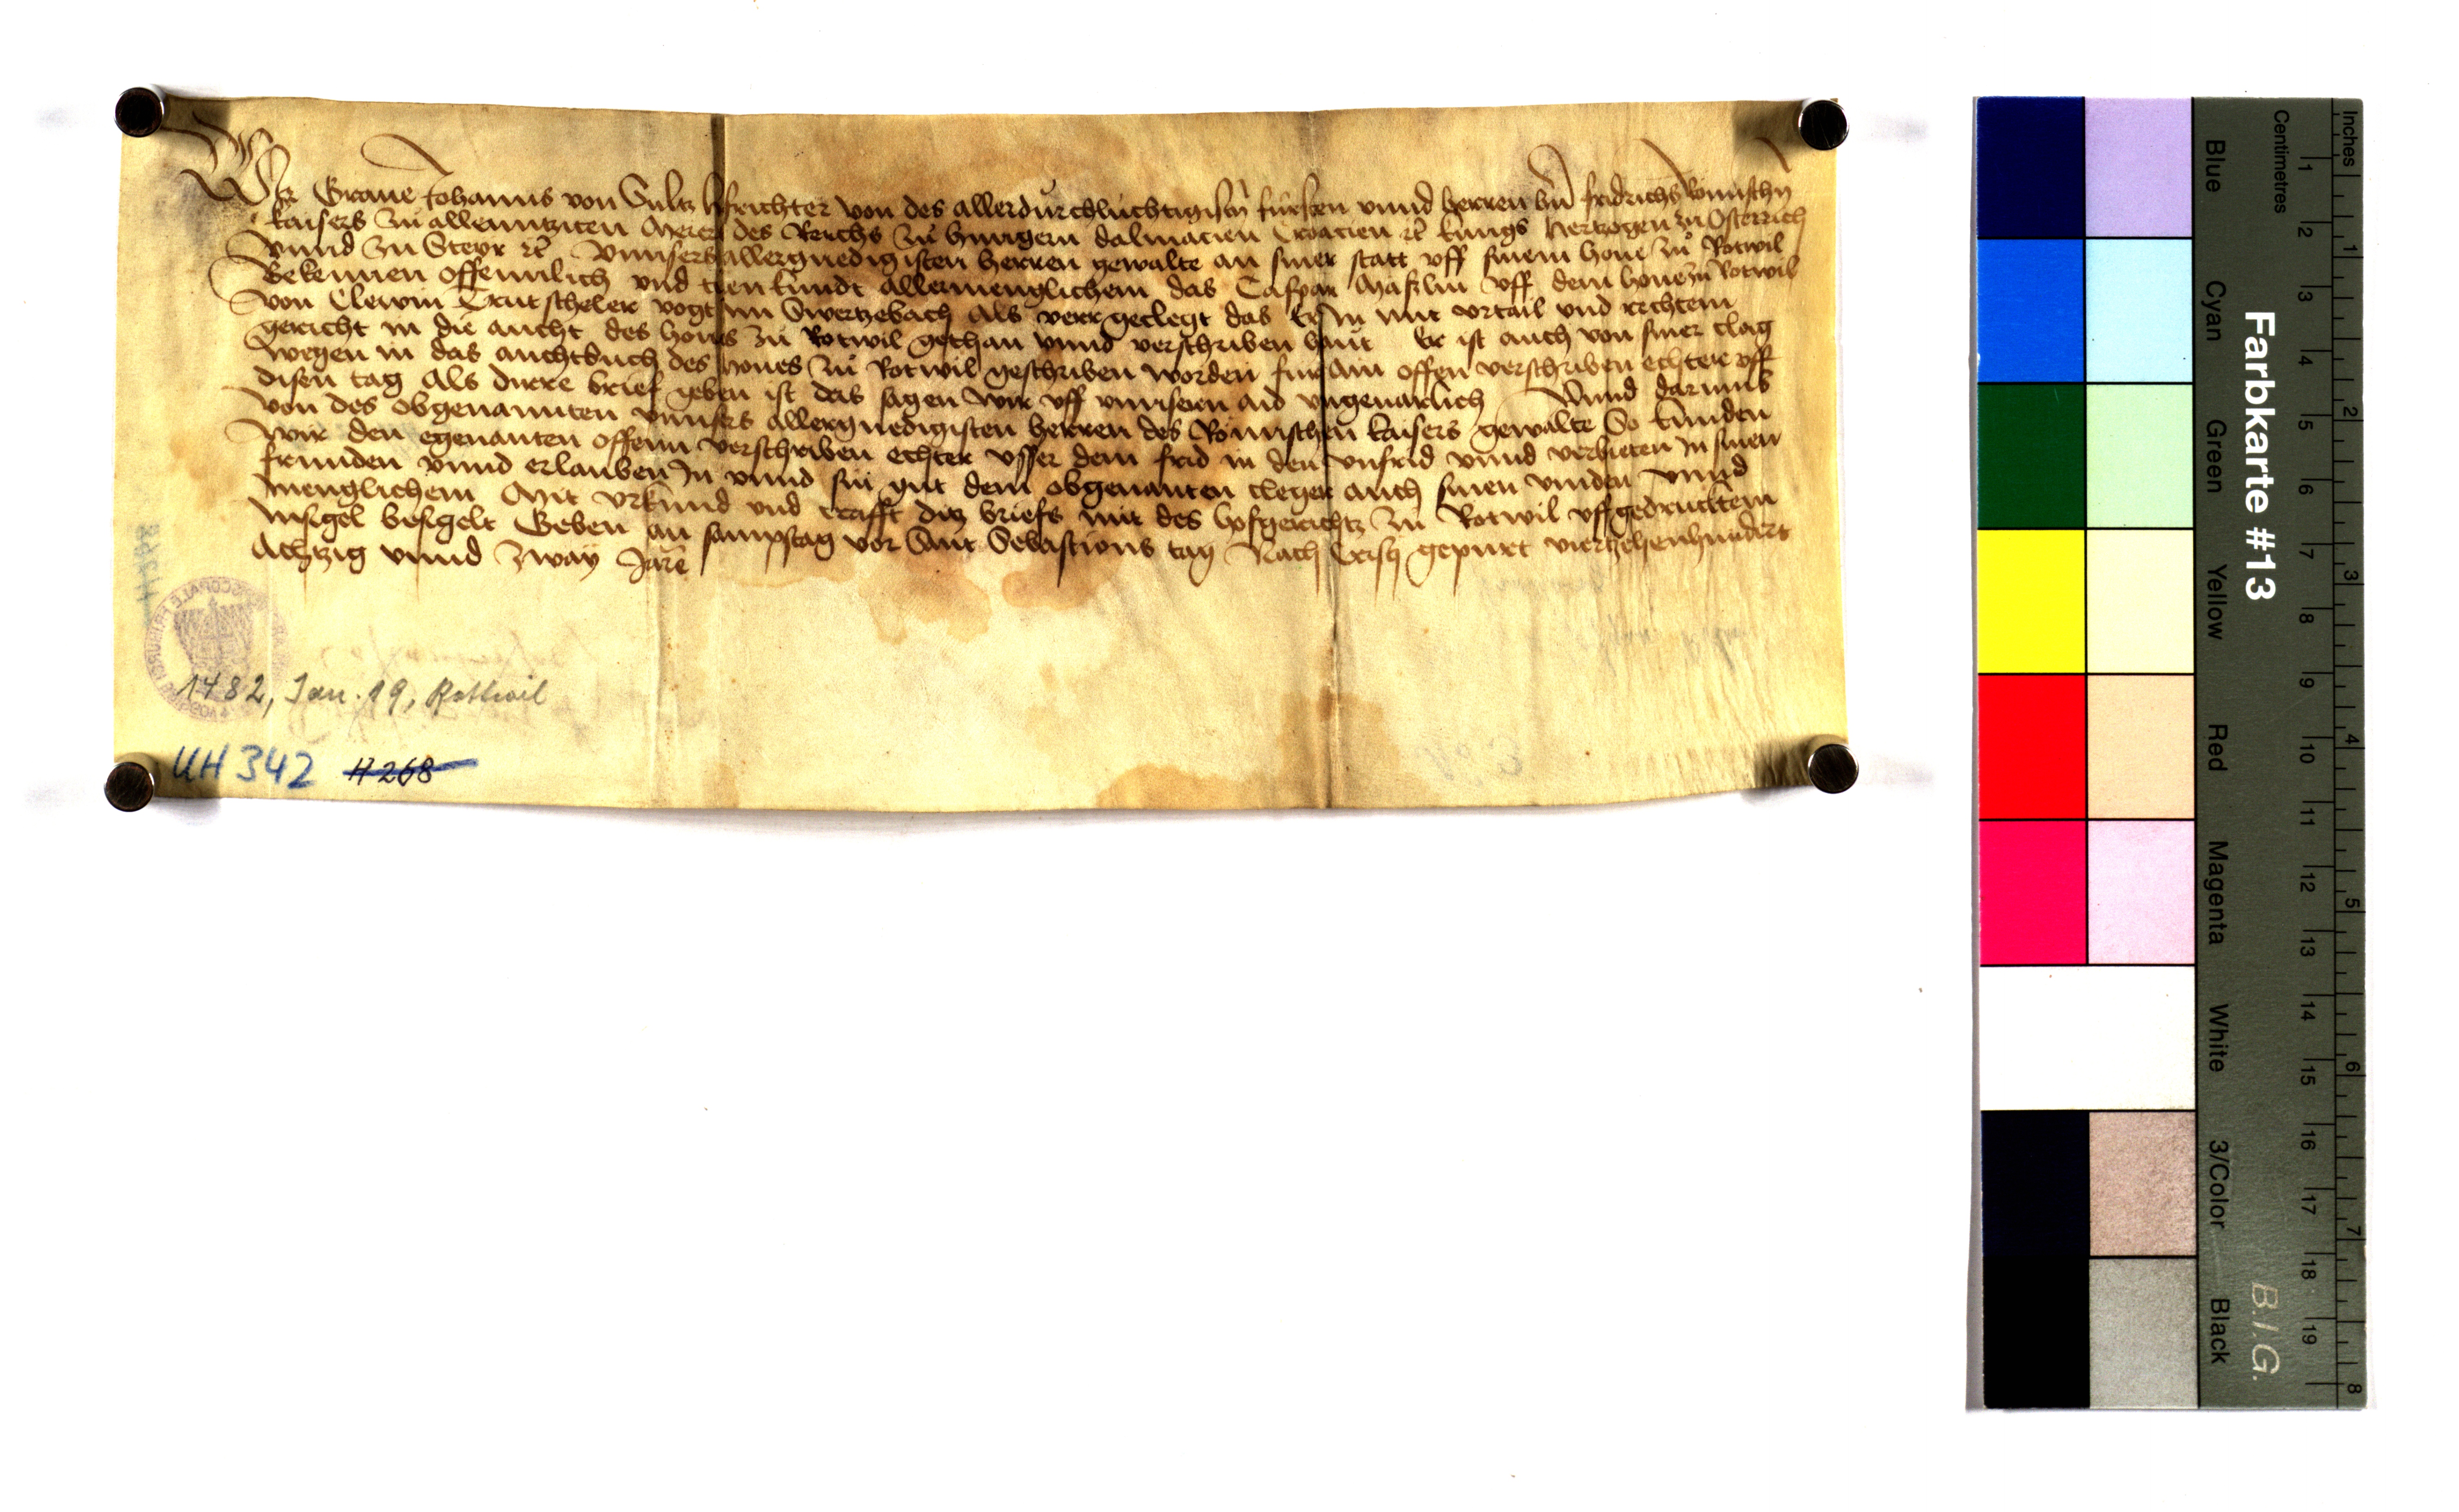 Wir Graue Johanns von Sultz hofrichter von des allerdurchluchtigisten fursten vnnd herren hern fridrichs Romischn
kaisers zu allenntziten Merer des Reichs zu hungern dalmacien Croacien etc kungs hertzogen zu Osterrich
vnnd zu Steyr etc vnnsers allergnedigisten herren gewalte an siner statt vff sinem houe zu Rotwil
Bekennen offennlich vnd tuen kundt allermenglichem das Caspar Mäslin vff dem houe zu Rotwil
von Clewin Trutscheler vogt im Swertzebach Als verr geclegt das Er In mit vrtail vnd rechtem
gericht in die aucht des houes zu Rotwil gethan vnnd verschriben haut Er ist auch von siner clag
wegen in das auchtbuch des houes zu Rotwil geschriben worden fur Ain offen verschriben echter vff
disen tag Als dirre brief geben ist das sagen wir vff vnnsern aid vngeuarlich Vnnd darumb
von des obgenannten vnnsers allergnedigisten herren des Römischen kaisers gewalte So kunden
wir den egenanten offenn verschriben echter vsser dem frid in den vnfrid vnnd verbieten In sinen
frunden vnnd erlauben In vnnd sin gut dem obgenanten cleger auch sinen vinden vnnd
menglichem Mit vrkund vnd crafft ditz briefs mit des hofgerichtz zu Rotwil vffgedrucktem
Insigel besigelt Geben an sampstag vor Sant Sebastions tag Nach Cristi gepurt viertzehenhundert
Achtzig vnnd zway Jare
1482, Jan. 19, Rottwil
UH 342 H 268
Farbkarte #13
B.I.G.
Blue Cyan Green Yellow Red Magenta White 3/Color Black
Centimetres 1 2 3 4 5 6 7 8 9 10 11 12 13 14 15 16 17 18 19
Inches 1 2 3 4 5 6 7 8